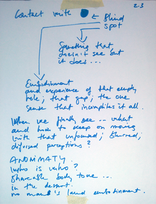 2.3
Contact with Blind
spot
Something that
doesn't see but
it does...
Embodiment
and experience of that empty
hole, that gap, the one
sense that incomplete it all.
When we family see --- what
and how to keep on moving
with that unfound, blurred,
different perceptions?
ANOMMATY
Who is who?
Shareable body tone ...
in the desert
no man's land embodiment.